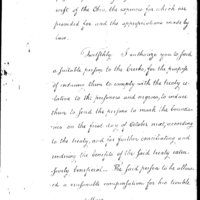 west of the Ohio, the expense for which are
provided for and the appropriations made by
law.
Twelfthly. I authorize you to send
a suitable person to the Creeks, for the purpose
of inducing them to comply with the treaty re-
lative to the prisoners and negroes, to induce
them to send the persons to mark the bounda-
ries on the first day of October next, according
to the treaty, and for further conciliating and
rendering the benefits of the said treaty exten-
sively reciprocal. The said person to be allow-
ed a reasonable compensation for his trouble